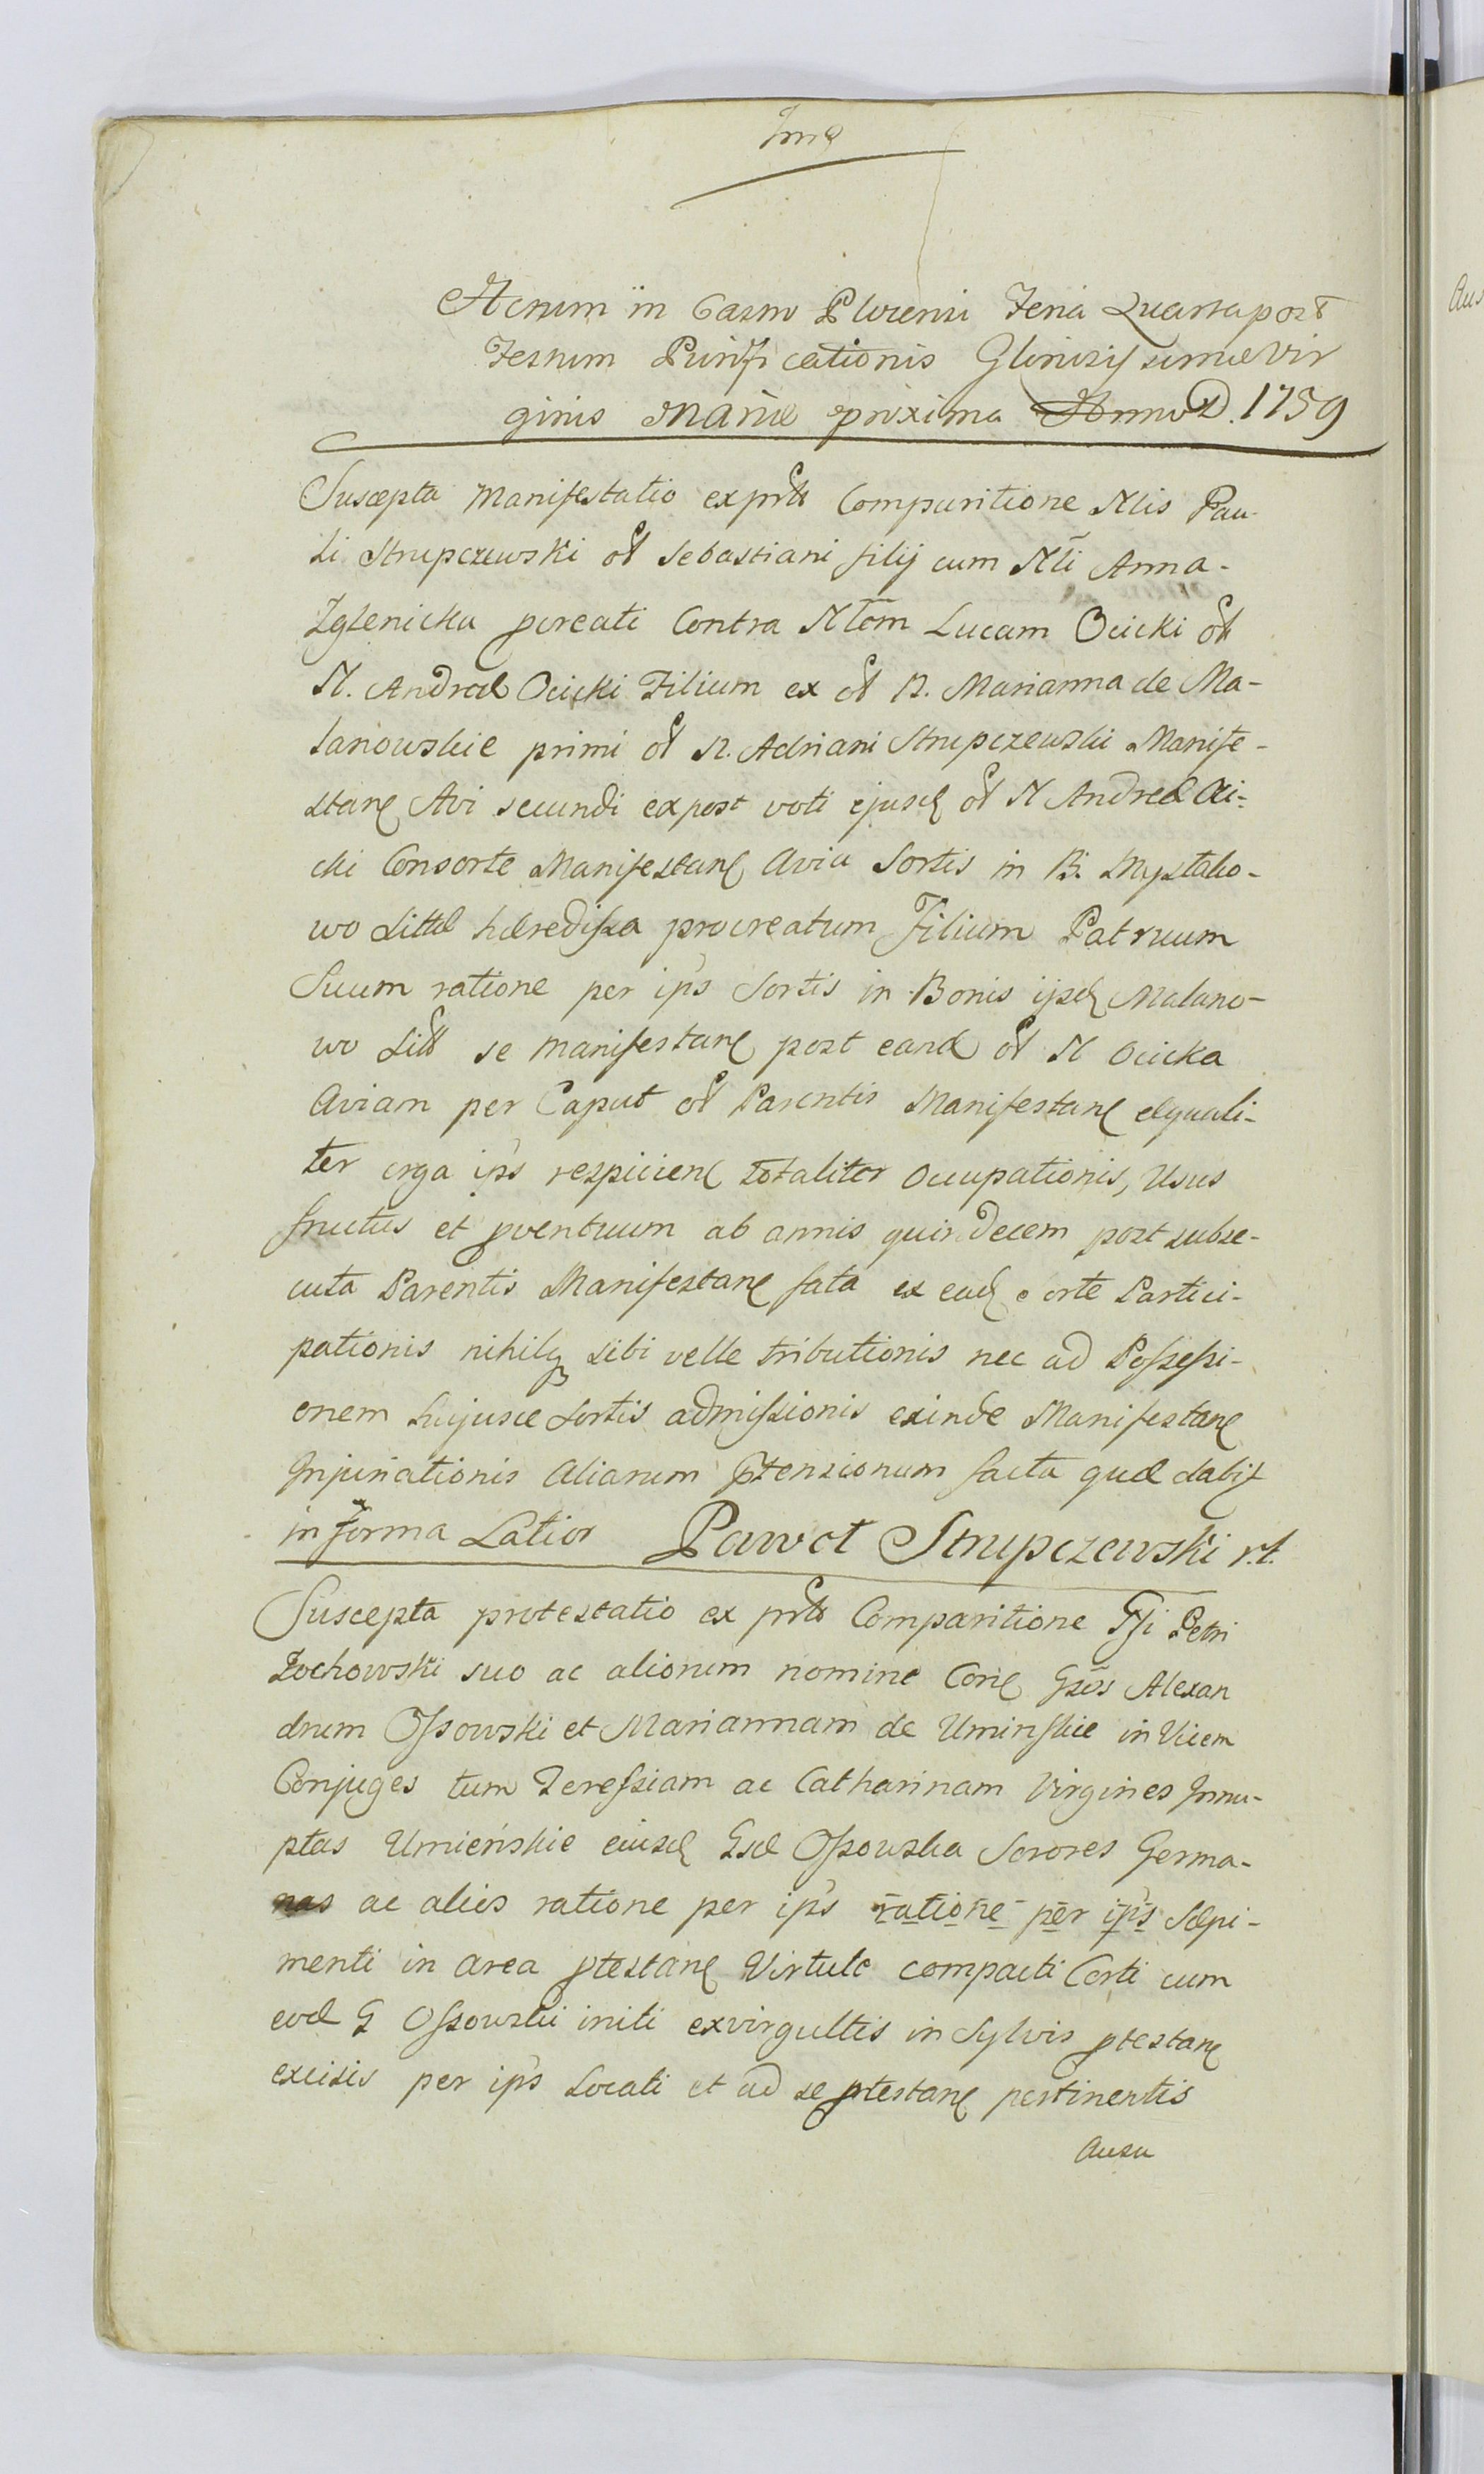 Actum in Castro Plocensi Feria Quarta post
Festum Purificationis Gloriosissimæ Vir
ginis Mariæ proxima Anno D. 1759
Suscepta Manifestatio ex prtt Comparitione Nlis Pau-
li Strupczewski ol Sebastiani filij cum Nli Anna-
Zglenicka pcreati Contra Nlem Lucam Ocicki ol
N. Andreæ Ocicki Filium ex ol N. Marianna de Ma-
lanowskie primi ol N. Adriani Strupczewski Manife-
stan Avi secundi expost voti ejusd ol N Andreæ Oci-
cki Consorte Manifestan Avia Sortis in B. Mystko-
wo Littæ hæredissa procreatum Filium Patruum
Suum ratione per ips Sortis in Bonis ijsd Malano-
wo Litt se manifestan post eand ol N Ocicka
Aviam per Caput ol Parentis Manifestan æquali-
ter erga ips respicien totaliter Occupationis, Usus
fructus et pventuum ab annis quindecem post subse-
cuta Parentis Manifestan fata ex ead sorte Partici-
pationis nihilq sibi velle tributionis nec ad Possessi-
onem hujusce Sortis admissionis exinde Manifestan
Injuriationis Aliarum ptensionum facta quæ dabit
in forma Latior Paweł Strupczewski r.t.
Suscepta protestatio ex prtt Comparitione Gsi Petri
Zochowski suo ac aliorum nomine Con Gsos Alexan
drum Ossowski et Mariannam de Uminskie in Vicem
Conjuges tum Teressiam ac Catharinam Virgines Innu-
ptas Umieńskie eiusd Gsæ Ossowska Sorores Germa-
nas ac alios ratione per ips ratione per ips Sæpi-
menti in area ptestan Virtute compacti Certi cum
eod G Ossowski initi ex virgultis in Sylvis ptestan
excisis per ips Locati et ad se ptestan pertinentis
Ausu